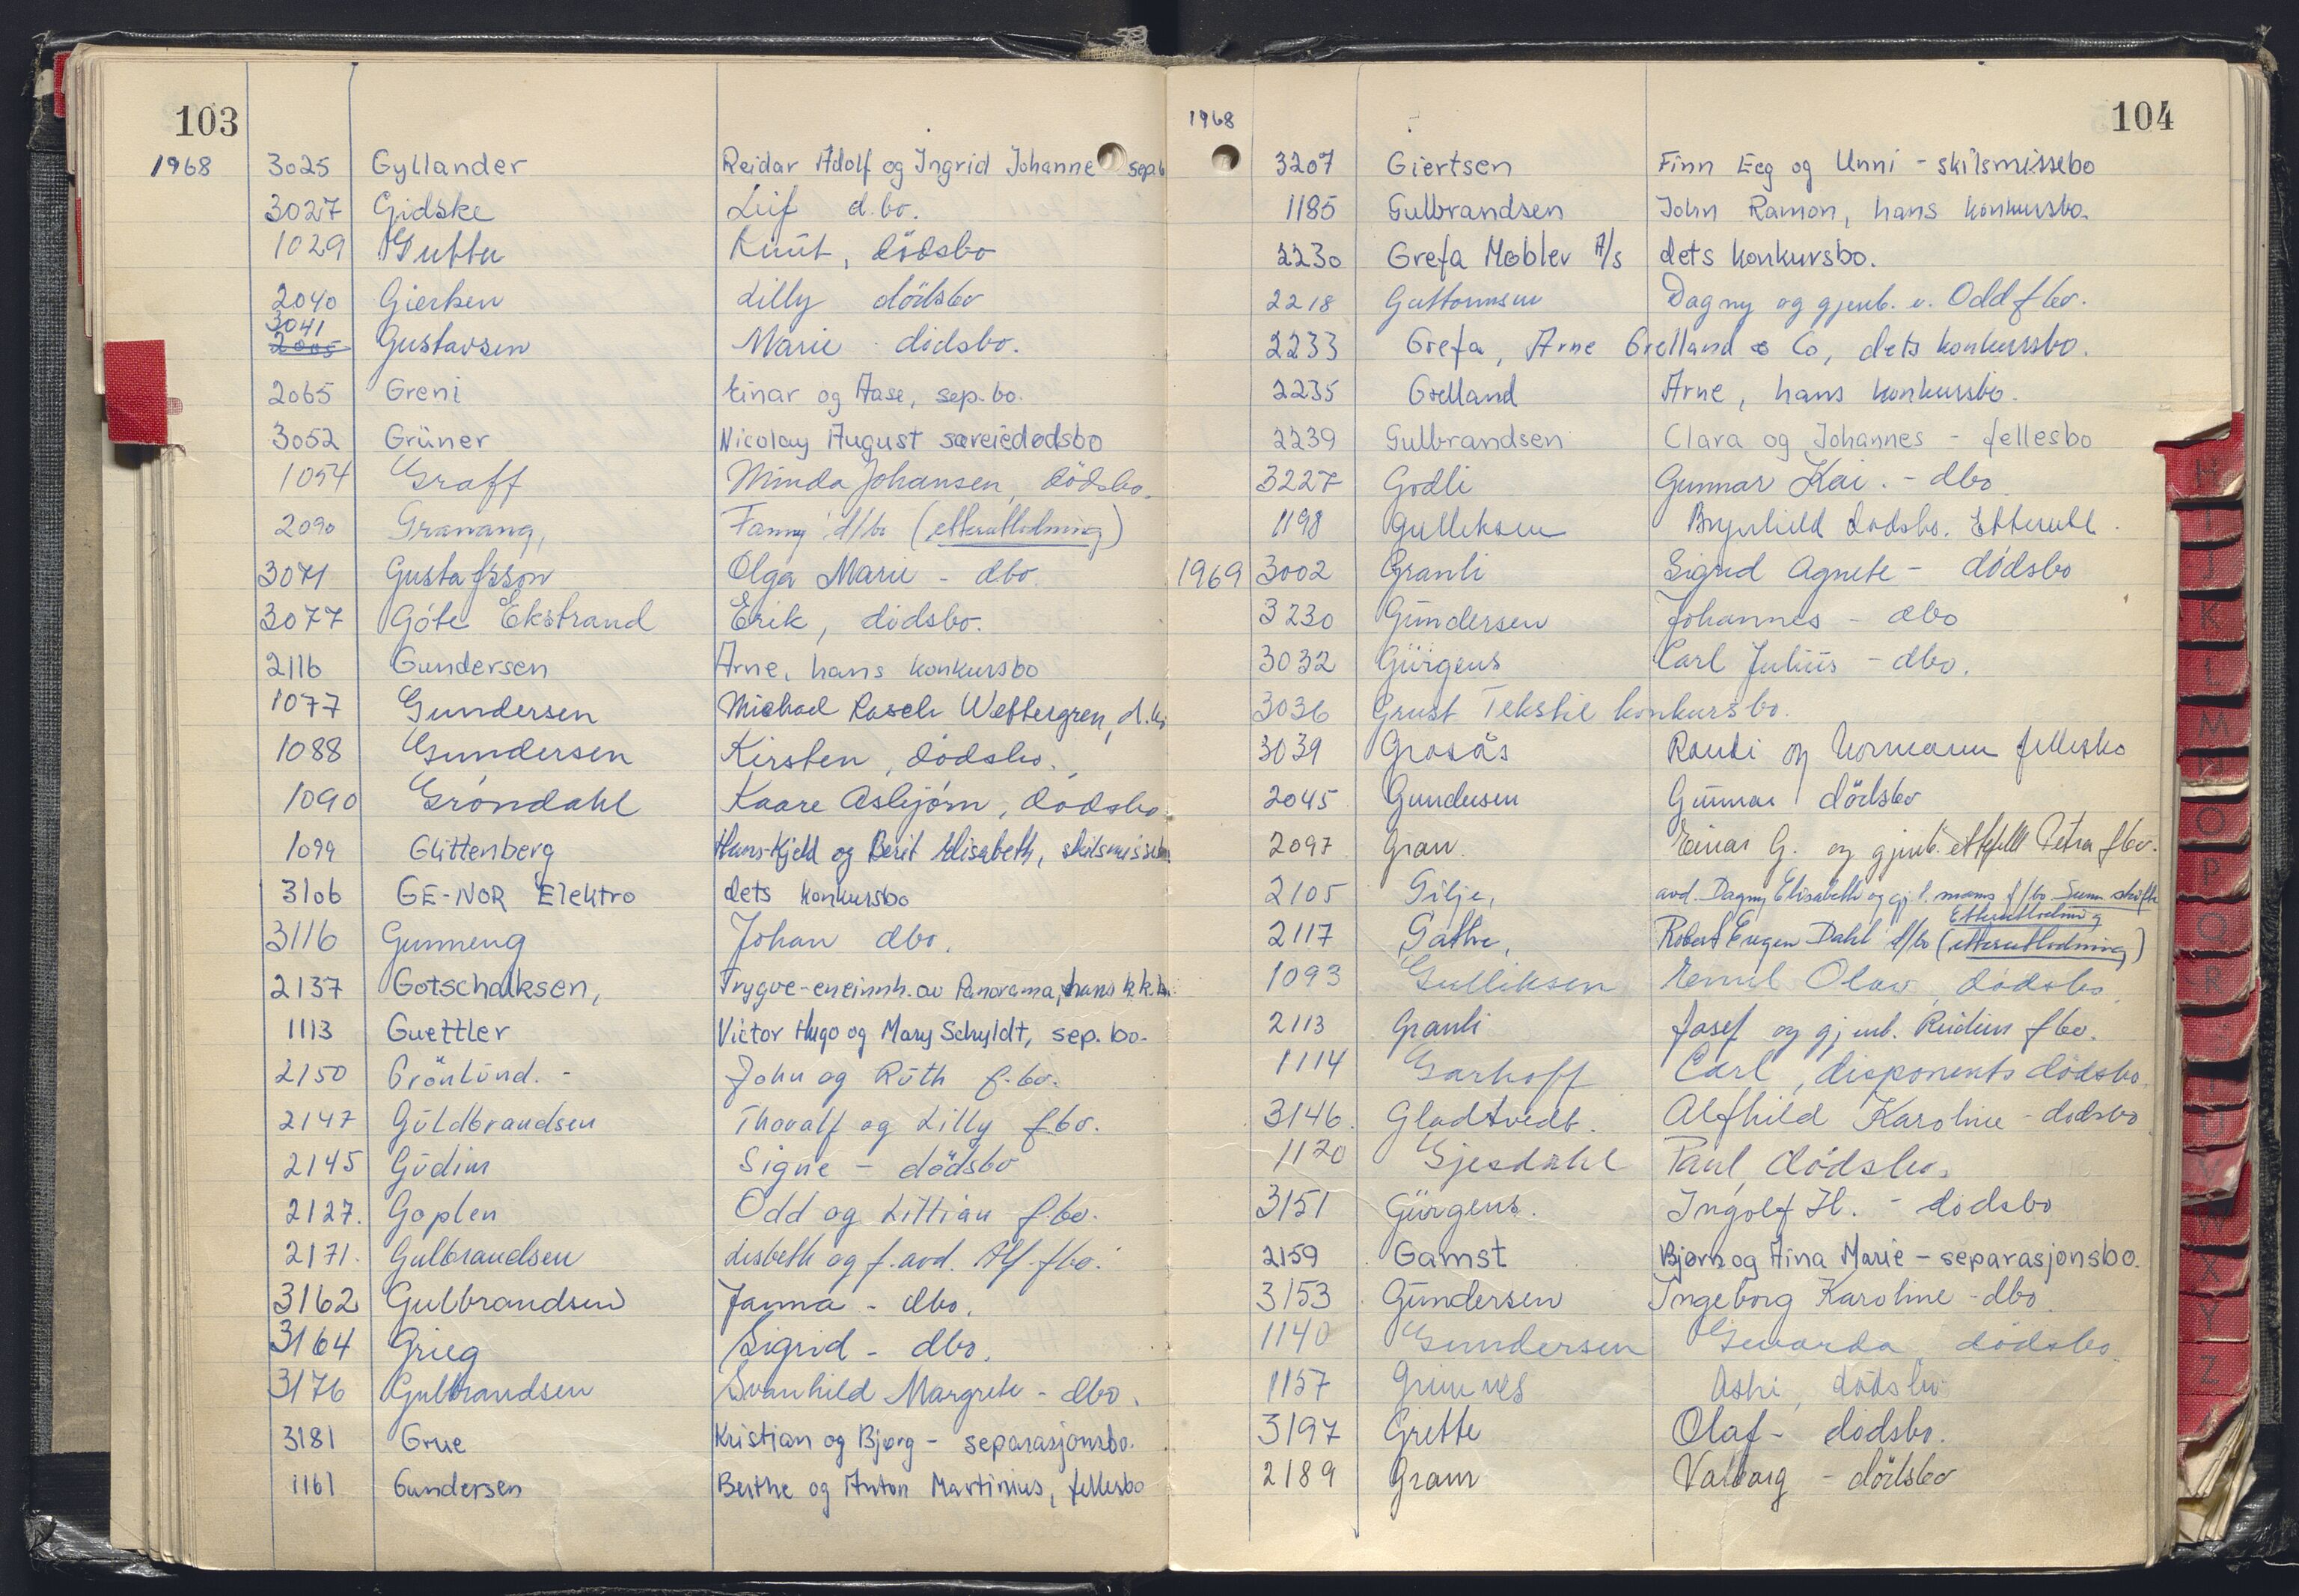 103
1968 3025 Gyllander Reidar Adolf og Ingrid Johanne sep.b
3027 Gidske Leif d.bo.
1029 Guttu Knut, dödsbo
2040 Gierken Lilly dödsbo
3041
2005 Gustavsen Marie dødsbo.
2065 Greni Einar og Aase, sep.bo.
3052 Grüner Nicolay August særeiedødsbo
1054 Graff Minda Johansen, dödsbo.
2090 Granang, Fanny d/bo (etterutlodning)
3071 Gustafsson Olga Marie - dbo.
3077 Göte Ekstrand Erik, dødsbo.
2116 Gundersen Arne, hans konkursbo
1077 Gundersen Michael Rasch Wettergren, d.
1088 Gundersen Kirsten, dödsbo.
1090 Gröndahl Kaare Asbjörn, dödsbo
1099 Glittenberg Hans-Kjeld og Berit Elisabeth, skilsmissebo
3106 GE-NOR Elektro dets konkursbo
3116 Gunneng Johan dbo.
2137 Gotschalksen, Trygve-eneinnh. av Panorama, hans k.k.bo.
1113 Guettler Victor Hugo og Mary Schyldt, sep. bo.
2150 Grönlund. - John og Ruth f.bo.
2147 Guldbrandsen Thoralf og Lilly f.bo.
2145 Gudim Signe - dödsbo
2127. Goplen Odd og Lillian f.bo.
2171. Gulbrandsen Lisbeth og f.avd. Alf f.bo.
3162 Gulbrandsen Janna - dbo.
3164 Grieg Sigrid - dbo.
3176 Gulbrandsen Svanhild Margrete - dbo.
3181 Grue Kristian og Bjørg - separasjonsbo.
1161 Gundersen Berthe og Anton Martinius, fellesbo
104
1968
3207 Giertsen Finn Eeg og Unni - skilsmissebo
1185 Gulbrandsen John Ramon, hans konkursbo.
2230 Grefa Møbler A/S dets konkursbo.
2218 Guttormsen Dagny og gjenl. e. Odd fbo.
2233 Grefa, Arne Grelland & Co, dets konkursbo.
2235 Grelland Arne, hans konkursbo.
2239 Gulbrandsen Clara og Johannes - fellesbo
3227 Godli Gunnar Kai. - dbo
1198 Gulliksen Brynhild dødsbo. Etterutl.
1969 3002 Granli Sigrid Agnete - dödsbo
3230 Gundersen Johannes - dbo
3032 Gürgens Carl Julius - dbo.
3036 Grust Tekstil konkursbo.
3039 Grosås Randi og Normann fellesbo
2045 Gundersen Gunnar dödsbo
2097 Gran. Einar G. og gjenl. ektefelle Petra fbo.
2105 Gilje, avd. Dagny Elisabeth og gj.l. manns f/bo Summ. skifte
Etterutlodning
2117 Gathe, Robert Eugen Dahl d/bo (etterutlodning)
1093 Gulliksen Emil Olav, dödsbo.
2113 Granli Josef og gjenl. fbo.
1114 Garhoff Carl, disponents dödsbo.
3146. Gladtvedt. Alfhild Karoline - dødsbo
1120 Gjesdahl Paul, dödsbo.
3151 Gürgens. Ingolf H. - dødsbo
2159 Gamst Bjørn og Aina Marie - separasjonsbo.
3153 Gundersen Ingeborg Karoline - dbo.
1140 Gundersen Gevarda dödsbo.
1157 Grimnes Aski, dödsbo
3197 Grette Olaf - dødsbo.
2189 Gram Valborg - dödsbo
H
I
J
K
L
M
N
O
P
Q
R
U
X
Y
Z